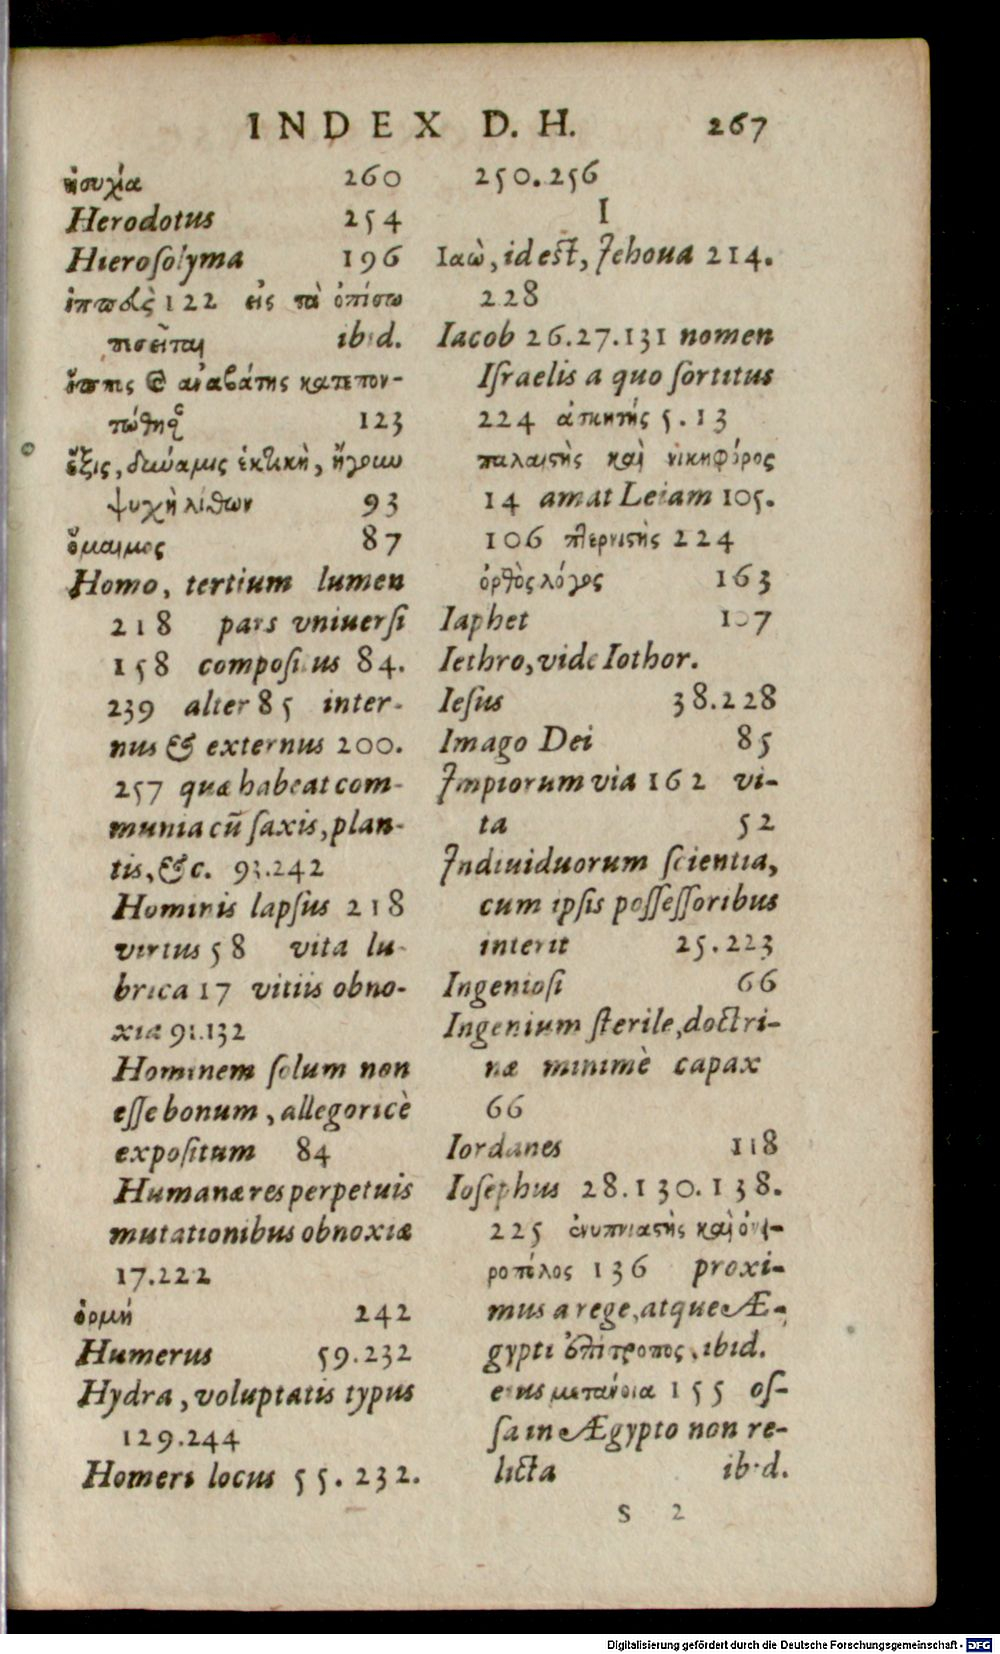 INDEX D. H. 267
ἡσυχία 260
Herodotus 254
Hierosolyma 196
ἱπποδς 122 εἰς τὰ ὀπίσω
πισεῖται ibid.
ἵππις Ⓒ ἀναβάτης κατεπον-
τώθησ 123
ἕξις, δύναμις ἑκτικὴ, ἤγουν
ψυχὴ λίθων 93
ὅμαιμος 87
Homo, tertium lumen
218 pars vniuersi
158 compositus 84.
239 alter 85 inter-
nus & externus 200.
257 quæ habeat com-
munia cū saxis, plan-
tis, &c. 93.242
Hominis lapsus 218
virtus 58 vita lu-
brica 17 vitiis obno-
xia 91.132
Hominem solum non
esse bonum, allegoricè
expositum 84
Humanæ res perpetuis
mutationibus obnoxiæ
17.222
ὁρμή 242
Humerus 59.232
Hydra, voluptatis typus
129.244
Homeri locus 55. 232.
250.256
I
Ιαὼ, id est, Jehoua 214.
228
Iacob 26.27.131 nomen
Israelis a quo sortitus
224 ἀσκητής 5.13
παλαιστὴς καὶ νικηφόρος
14 amat Leiam 105.
106 πτερνιστὴς 224
ὀρθὸς λόγος 163
Iaphet 107
Iethro, vide Iothor.
Iesus 38.228
Imago Dei 85
Impiorum via 162 vi-
ta 52
Indiuiduorum scientia,
cum ipsis possessoribus
interit 25.223
Ingeniosi 66
Ingenium sterile, doctri-
næ minimè capax
66
Iordanes 118
Iosephus 28.130.138.
225 ἐνυπνιαστὴς καὶ ὀνει-
ροπόλος 136 proxi-
mus a rege, atque Æ-
gypti ἐπίτροπος, ibid.
eius μετάνοια 155 os-
sa in Ægypto non re-
licta ibid.
S 2
Digitalisierung gefördert durch die Deutsche Forschungsgemeinschaft - DFG